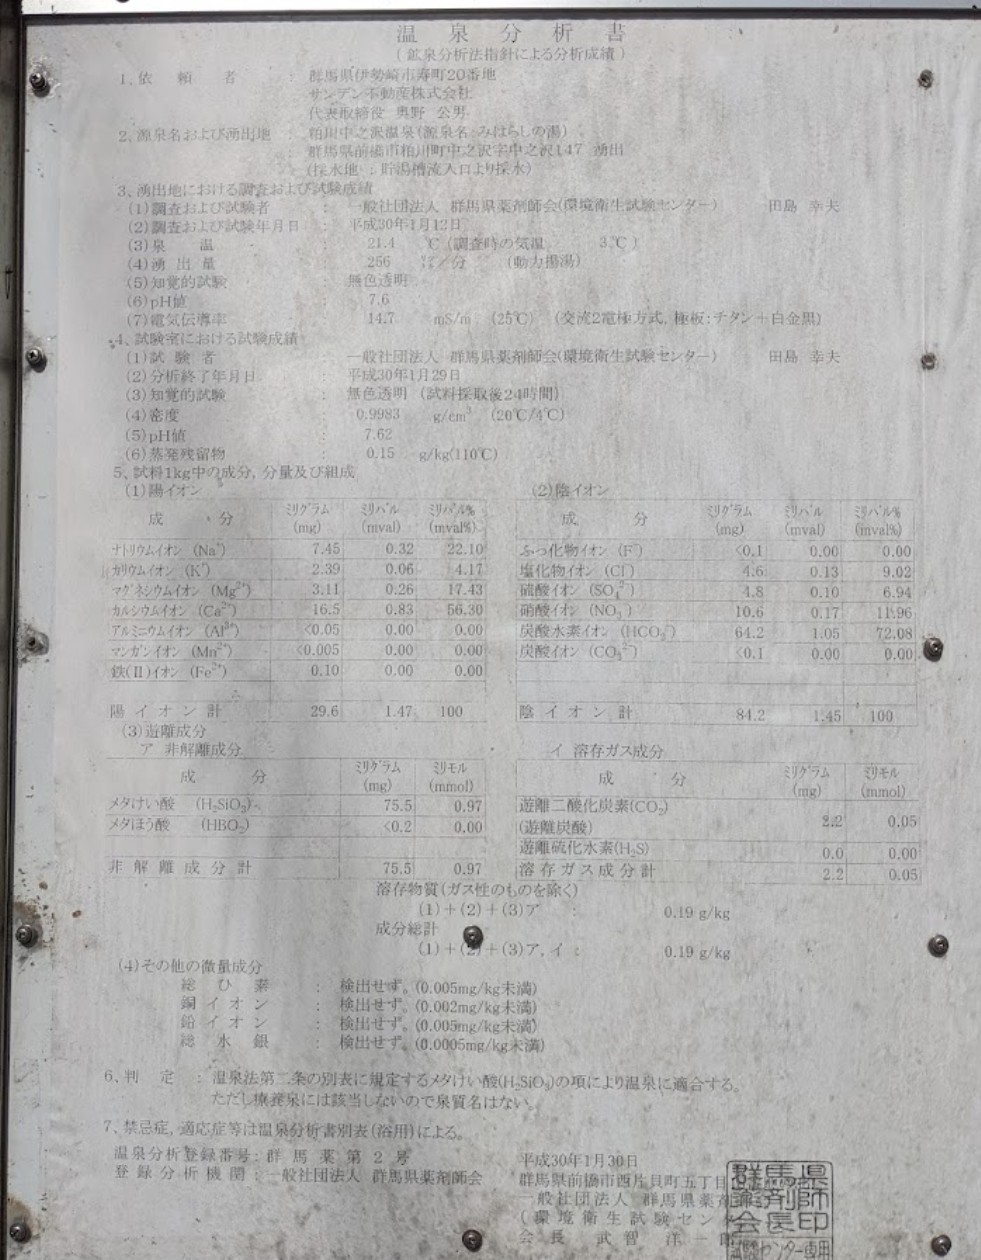 温泉分析書
(鉱泉分析法指針による分析成績)
1、依頼者 : 群馬県伊勢崎市寿町20番地
サンデン不動産株式会社
代表取締役 奥野 公男
2、源泉名および湧出地 : 粕川中之沢温泉(源泉名:みはらしの湯)
群馬県前橋市粕川町中之沢字中之沢147 湧出
(採水地:貯湯槽流入口より採水)
3、湧出地における調査および試験成績
(1)調査および試験者 : 一般社団法人 群馬県薬剤師会(環境衛生試験センター) 田島 幸夫
(2)調査および試験年月日 : 平成30年1月12日
(3)泉温 : 21.4 ℃ (調査時の気温 3℃)
(4)湧出量 : 256 ㍑/分 (動力揚湯)
(5)知覚的試験 : 無色透明
(6)pH値 : 7.6
(7)電気伝導率 : 14.7 mS/m (25℃) (交流2電極方式, 極板:チタン+白金黒)
4、試験室における試験成績
(1)試験者 : 一般社団法人 群馬県薬剤師会(環境衛生試験センター) 田島 幸夫
(2)分析終了年月日 : 平成30年1月29日
(3)知覚的試験 : 無色透明 (試料採取後24時間)
(4)密度 : 0.9983 g/cm³ (20℃/4℃)
(5)pH値 : 7.62
(6)蒸発残留物 : 0.15 g/kg(110℃)
5、試料1kg中の成分, 分量及び組成
(1)陽イオン
成分 ミリグラム(mg) ミリバル(mval) ミリバル%(mval%)
ナトリウムイオン (Na⁺) 7.45 0.32 22.10
カリウムイオン (K⁺) 2.39 0.06 4.17
マグネシウムイオン (Mg²⁺) 3.11 0.26 17.43
カルシウムイオン (Ca²⁺) 16.5 0.83 56.30
アルミニウムイオン (Al³⁺) <0.05 0.00 0.00
マンガンイオン (Mn²⁺) <0.005 0.00 0.00
鉄(Ⅱ)イオン (Fe²⁺) 0.10 0.00 0.00
陽イオン計 29.6 1.47 100
(2)陰イオン
成分 ミリグラム(mg) ミリバル(mval) ミリバル%(mval%)
ふっ化物イオン (F⁻) <0.1 0.00 0.00
塩化物イオン (Cl⁻) 4.6 0.13 9.02
硫酸イオン (SO₄²⁻) 4.8 0.10 6.94
硝酸イオン (NO₃⁻) 10.6 0.17 11.96
炭酸水素イオン (HCO₃⁻) 64.2 1.05 72.08
炭酸イオン (CO₃²⁻) <0.1 0.00 0.00
陰イオン計 84.2 1.45 100
(3)遊離成分
ア 非解離成分
成分 ミリグラム(mg) ミリモル(mmol)
メタけい酸 (H₂SiO₃) 75.5 0.97
メタほう酸 (HBO₂) <0.2 0.00
非解離成分計 75.5 0.97
イ 溶存ガス成分
成分 ミリグラム(mg) ミリモル(mmol)
遊離二酸化炭素(CO₂)
(遊離炭酸) 2.2 0.05
遊離硫化水素(H₂S) 0.0 0.00
溶存ガス成分計 2.2 0.05
溶存物質(ガス性のものを除く)
(1)+(2)+(3)ア : 0.19 g/kg
成分総計
(1)+(2)+(3)ア, イ : 0.19 g/kg
(4)その他の微量成分
総ひ素 : 検出せず。(0.005mg/kg未満)
銅イオン : 検出せず。(0.002mg/kg未満)
鉛イオン : 検出せず。(0.005mg/kg未満)
総水銀 : 検出せず。(0.0005mg/kg未満)
6、判定 : 温泉法第二条の別表に規定するメタけい酸(H₂SiO₃)の項により温泉に適合する。
ただし療養泉には該当しないので泉質名はない。
7、禁忌症, 適応症等は温泉分析書別表(浴用)による。
温泉分析登録番号:群馬薬第2号
登録分析機関:一般社団法人 群馬県薬剤師会
平成30年1月30日
群馬県前橋市西片貝町五丁目
一般社団法人 群馬県薬剤
(環境衛生試験セン
会長 武智 洋一郎
群馬県
薬剤師
会長印
試験センター専用